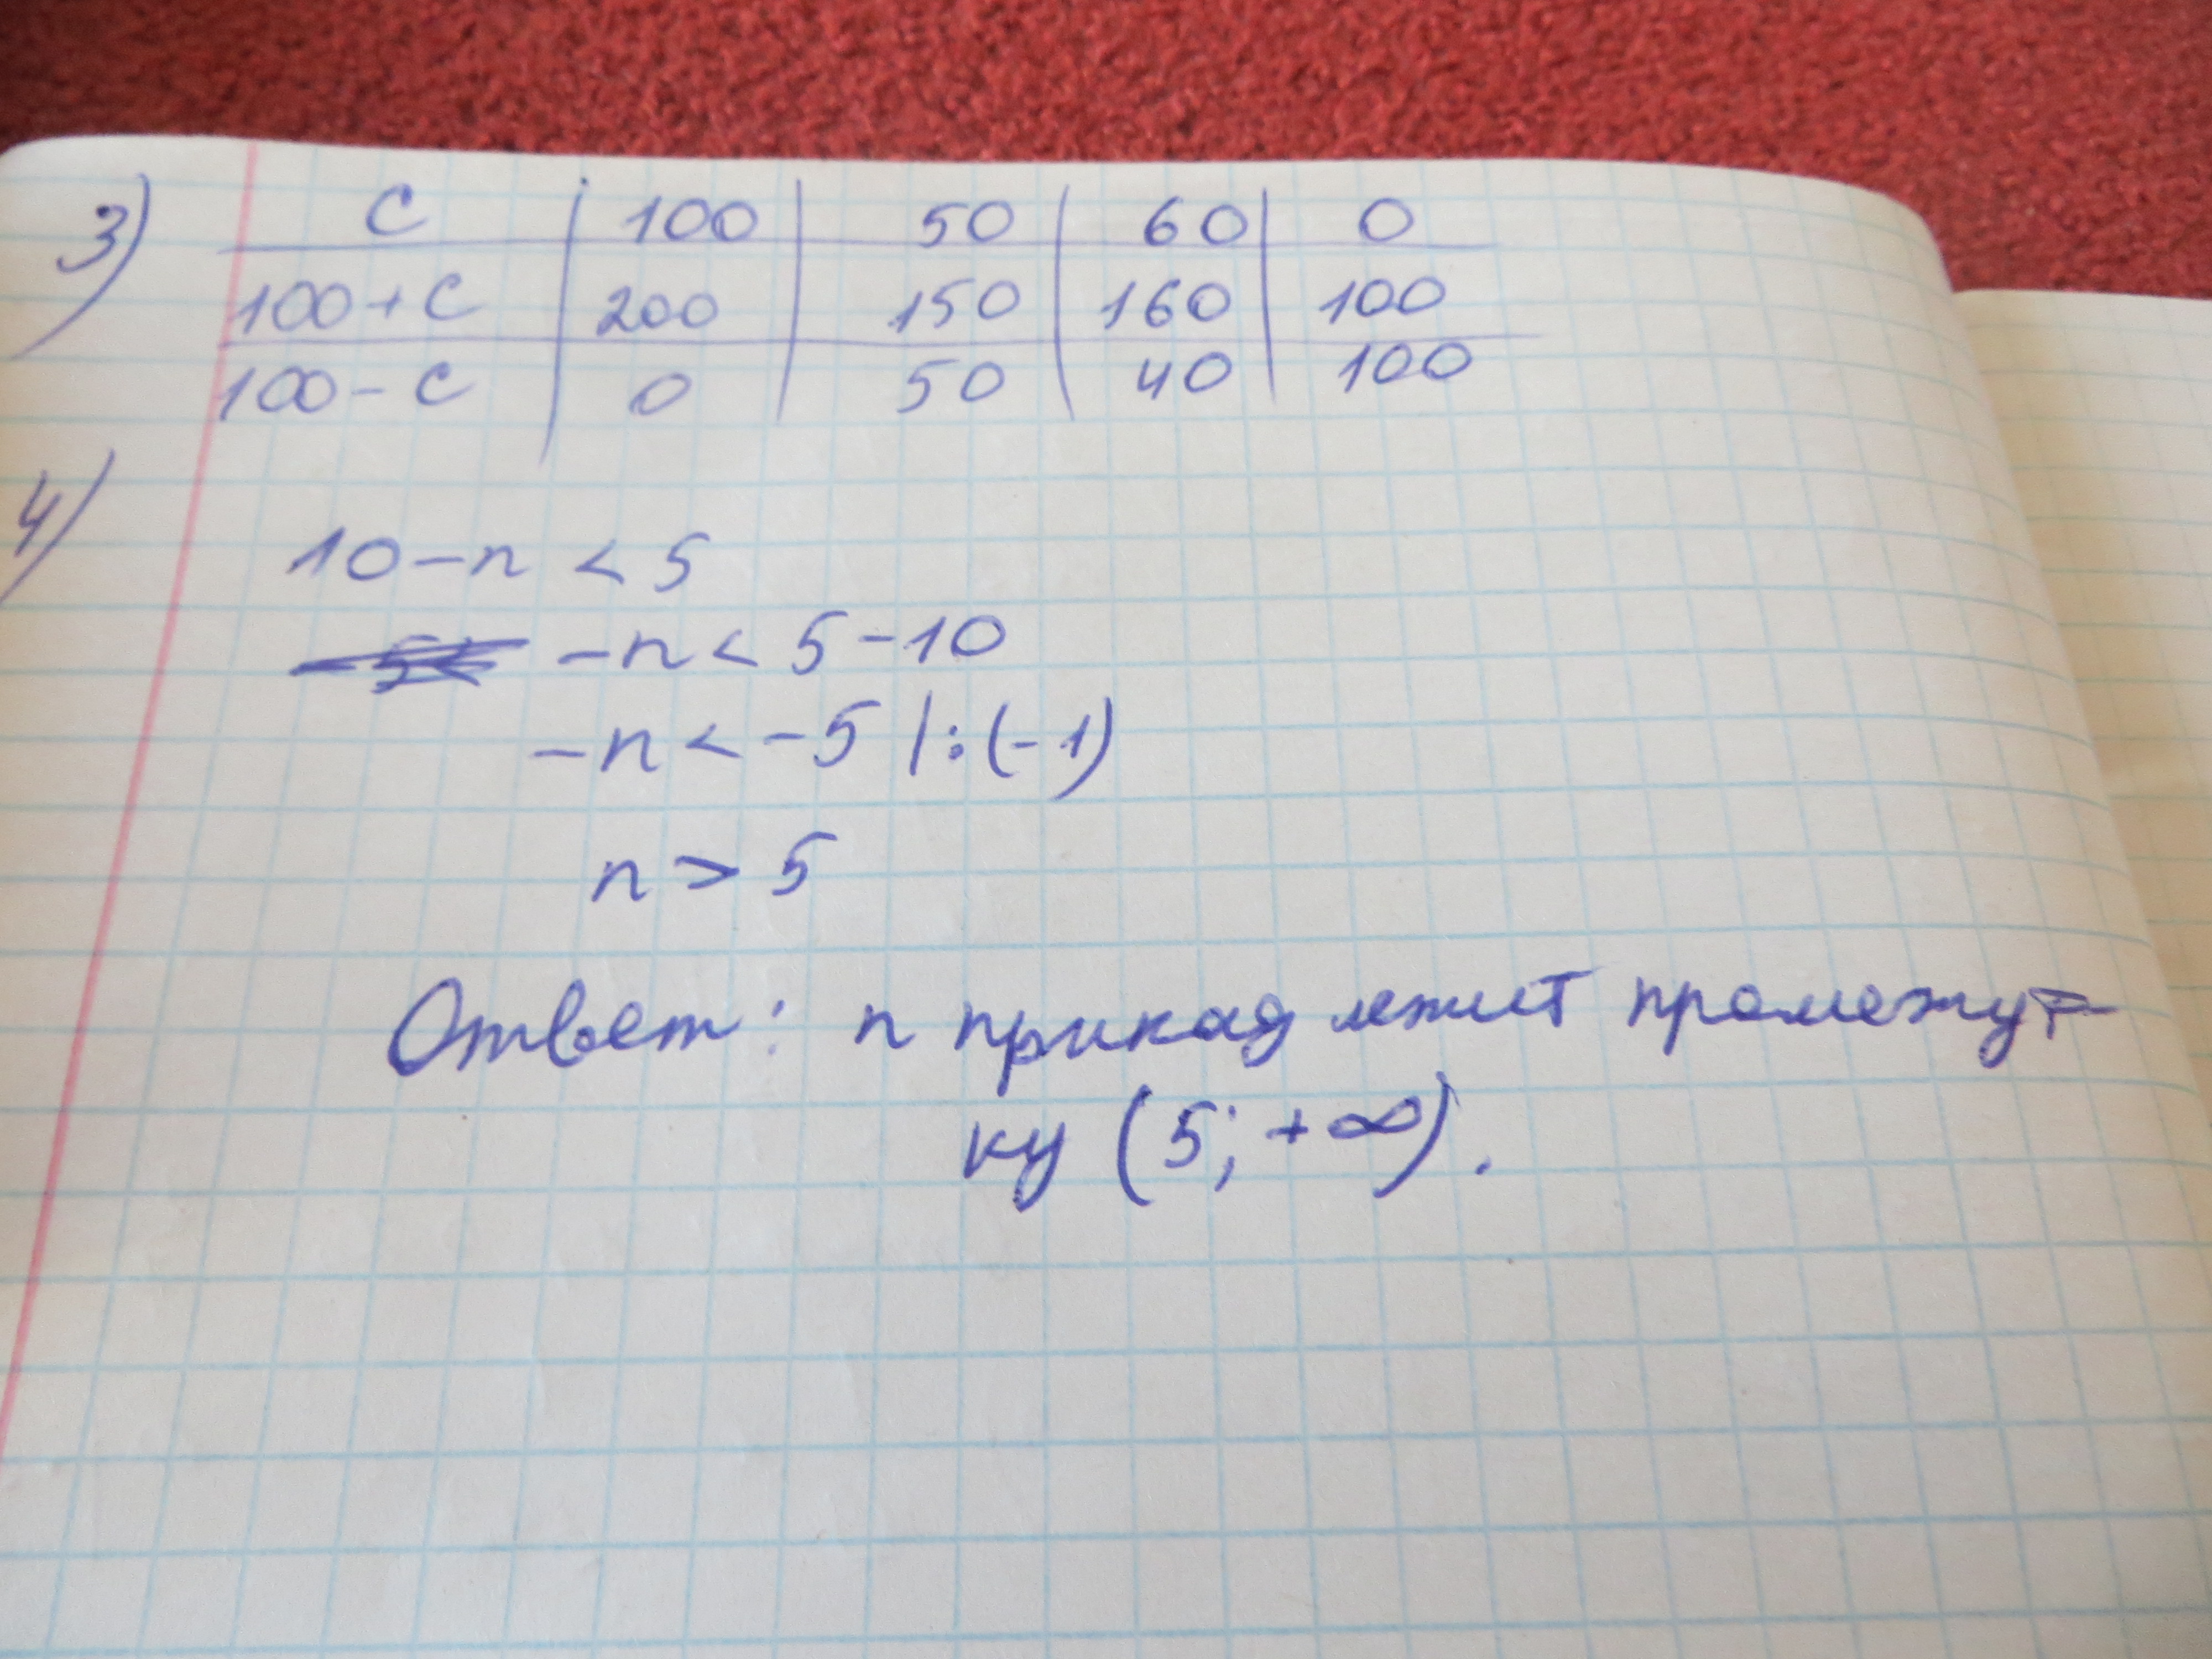 3) C | 100 | 50 | 60 | 0
100+C | 200 | 150 | 160 | 100
100-C | 0 | 50 | 40 | 100
4)
10-n < 5
-n < 5-10
-n < -5 |:(-1)
n > 5
Ответ: n принадлежит промежут-
ку (5; +∞).